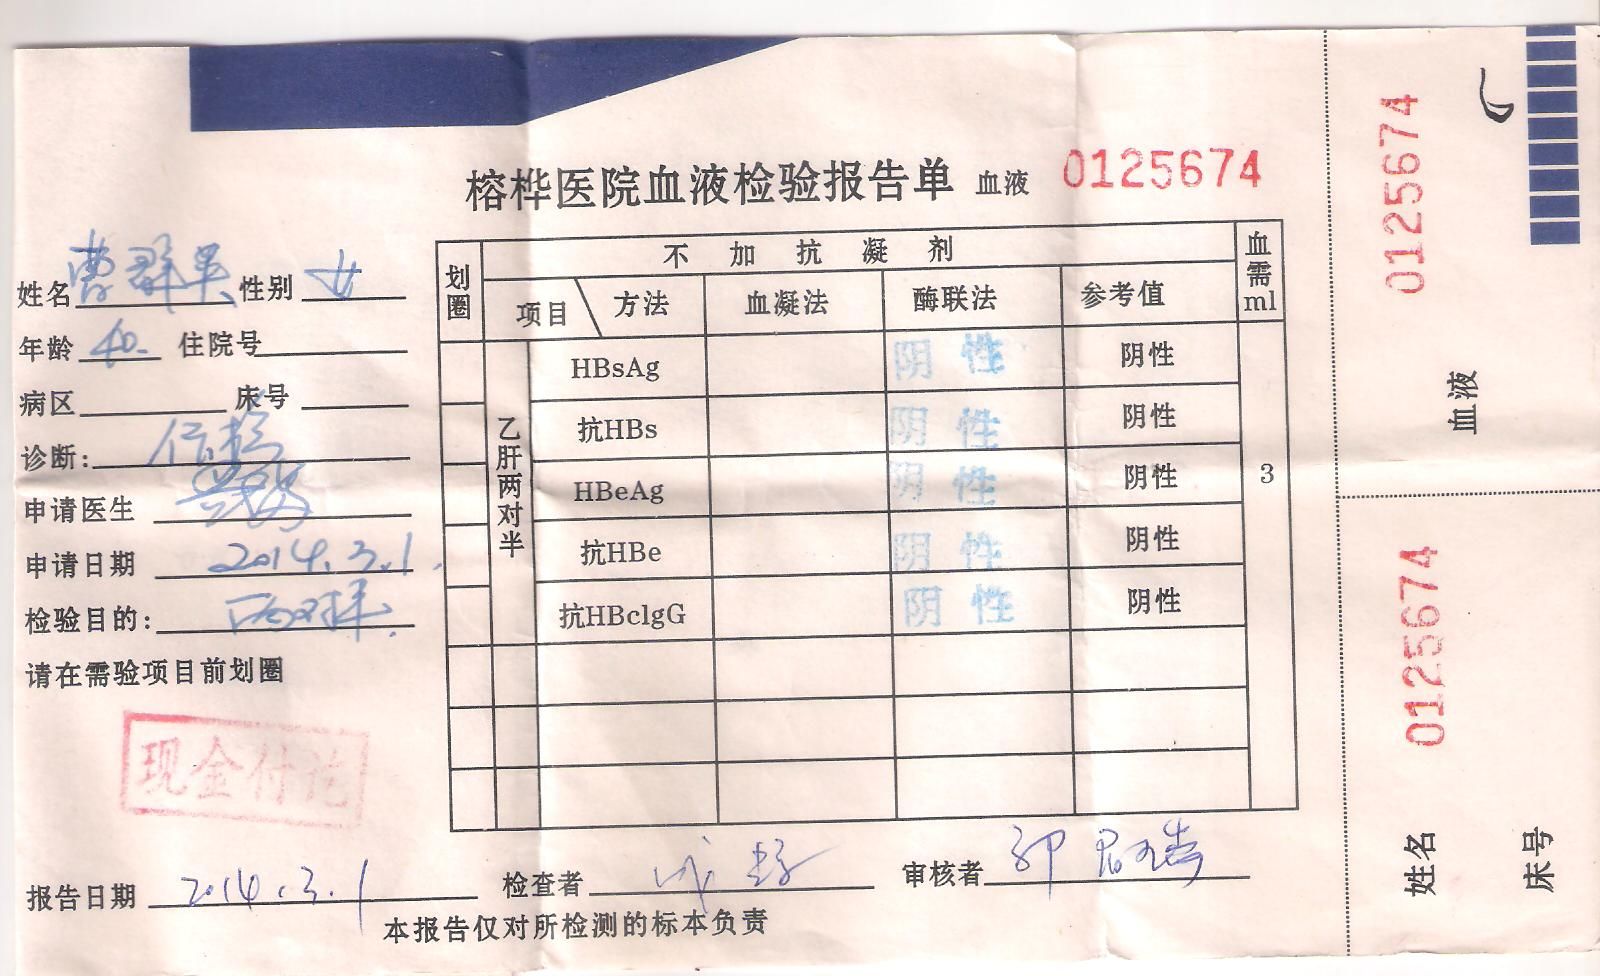 榕桦医院血液检验报告单 血液 0125674
姓名 曹群英 性别 女
年龄 40. 住院号
病区 床号
诊断:
申请医生
申请日期 2014.3.1.
检验目的: 两对半.
请在需验项目前划圈
现金付讫
划圈 不加抗凝剂 血需ml
项目 方法 血凝法 酶联法 参考值
乙肝两对半 3
HBsAg 阴性 阴性
抗HBs 阴性 阴性
HBeAg 阴性 阴性
抗HBe 阴性 阴性
抗HBclgG 阴性 阴性
报告日期 2014.3.1 检查者 审核者
本报告仅对所检测的标本负责
0125674
血液
0125674
姓名
床号